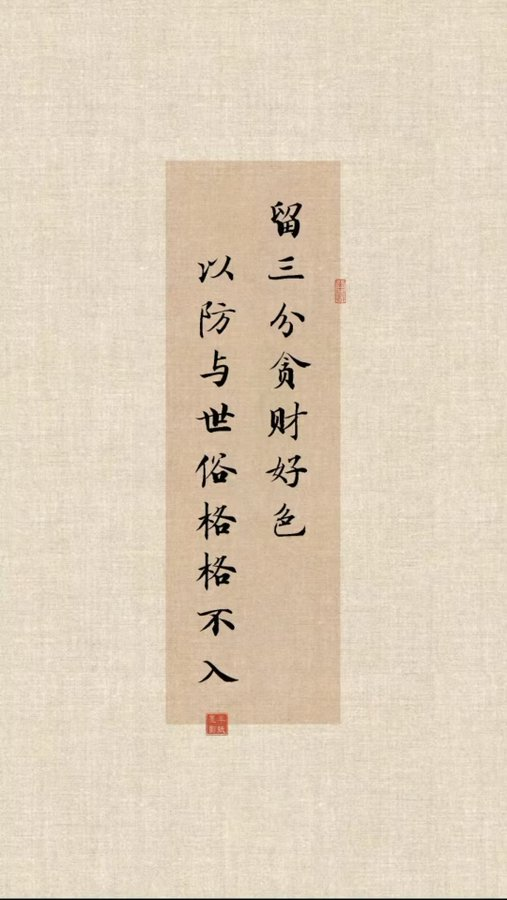 留三分贪财好色
以防与世俗格格不入